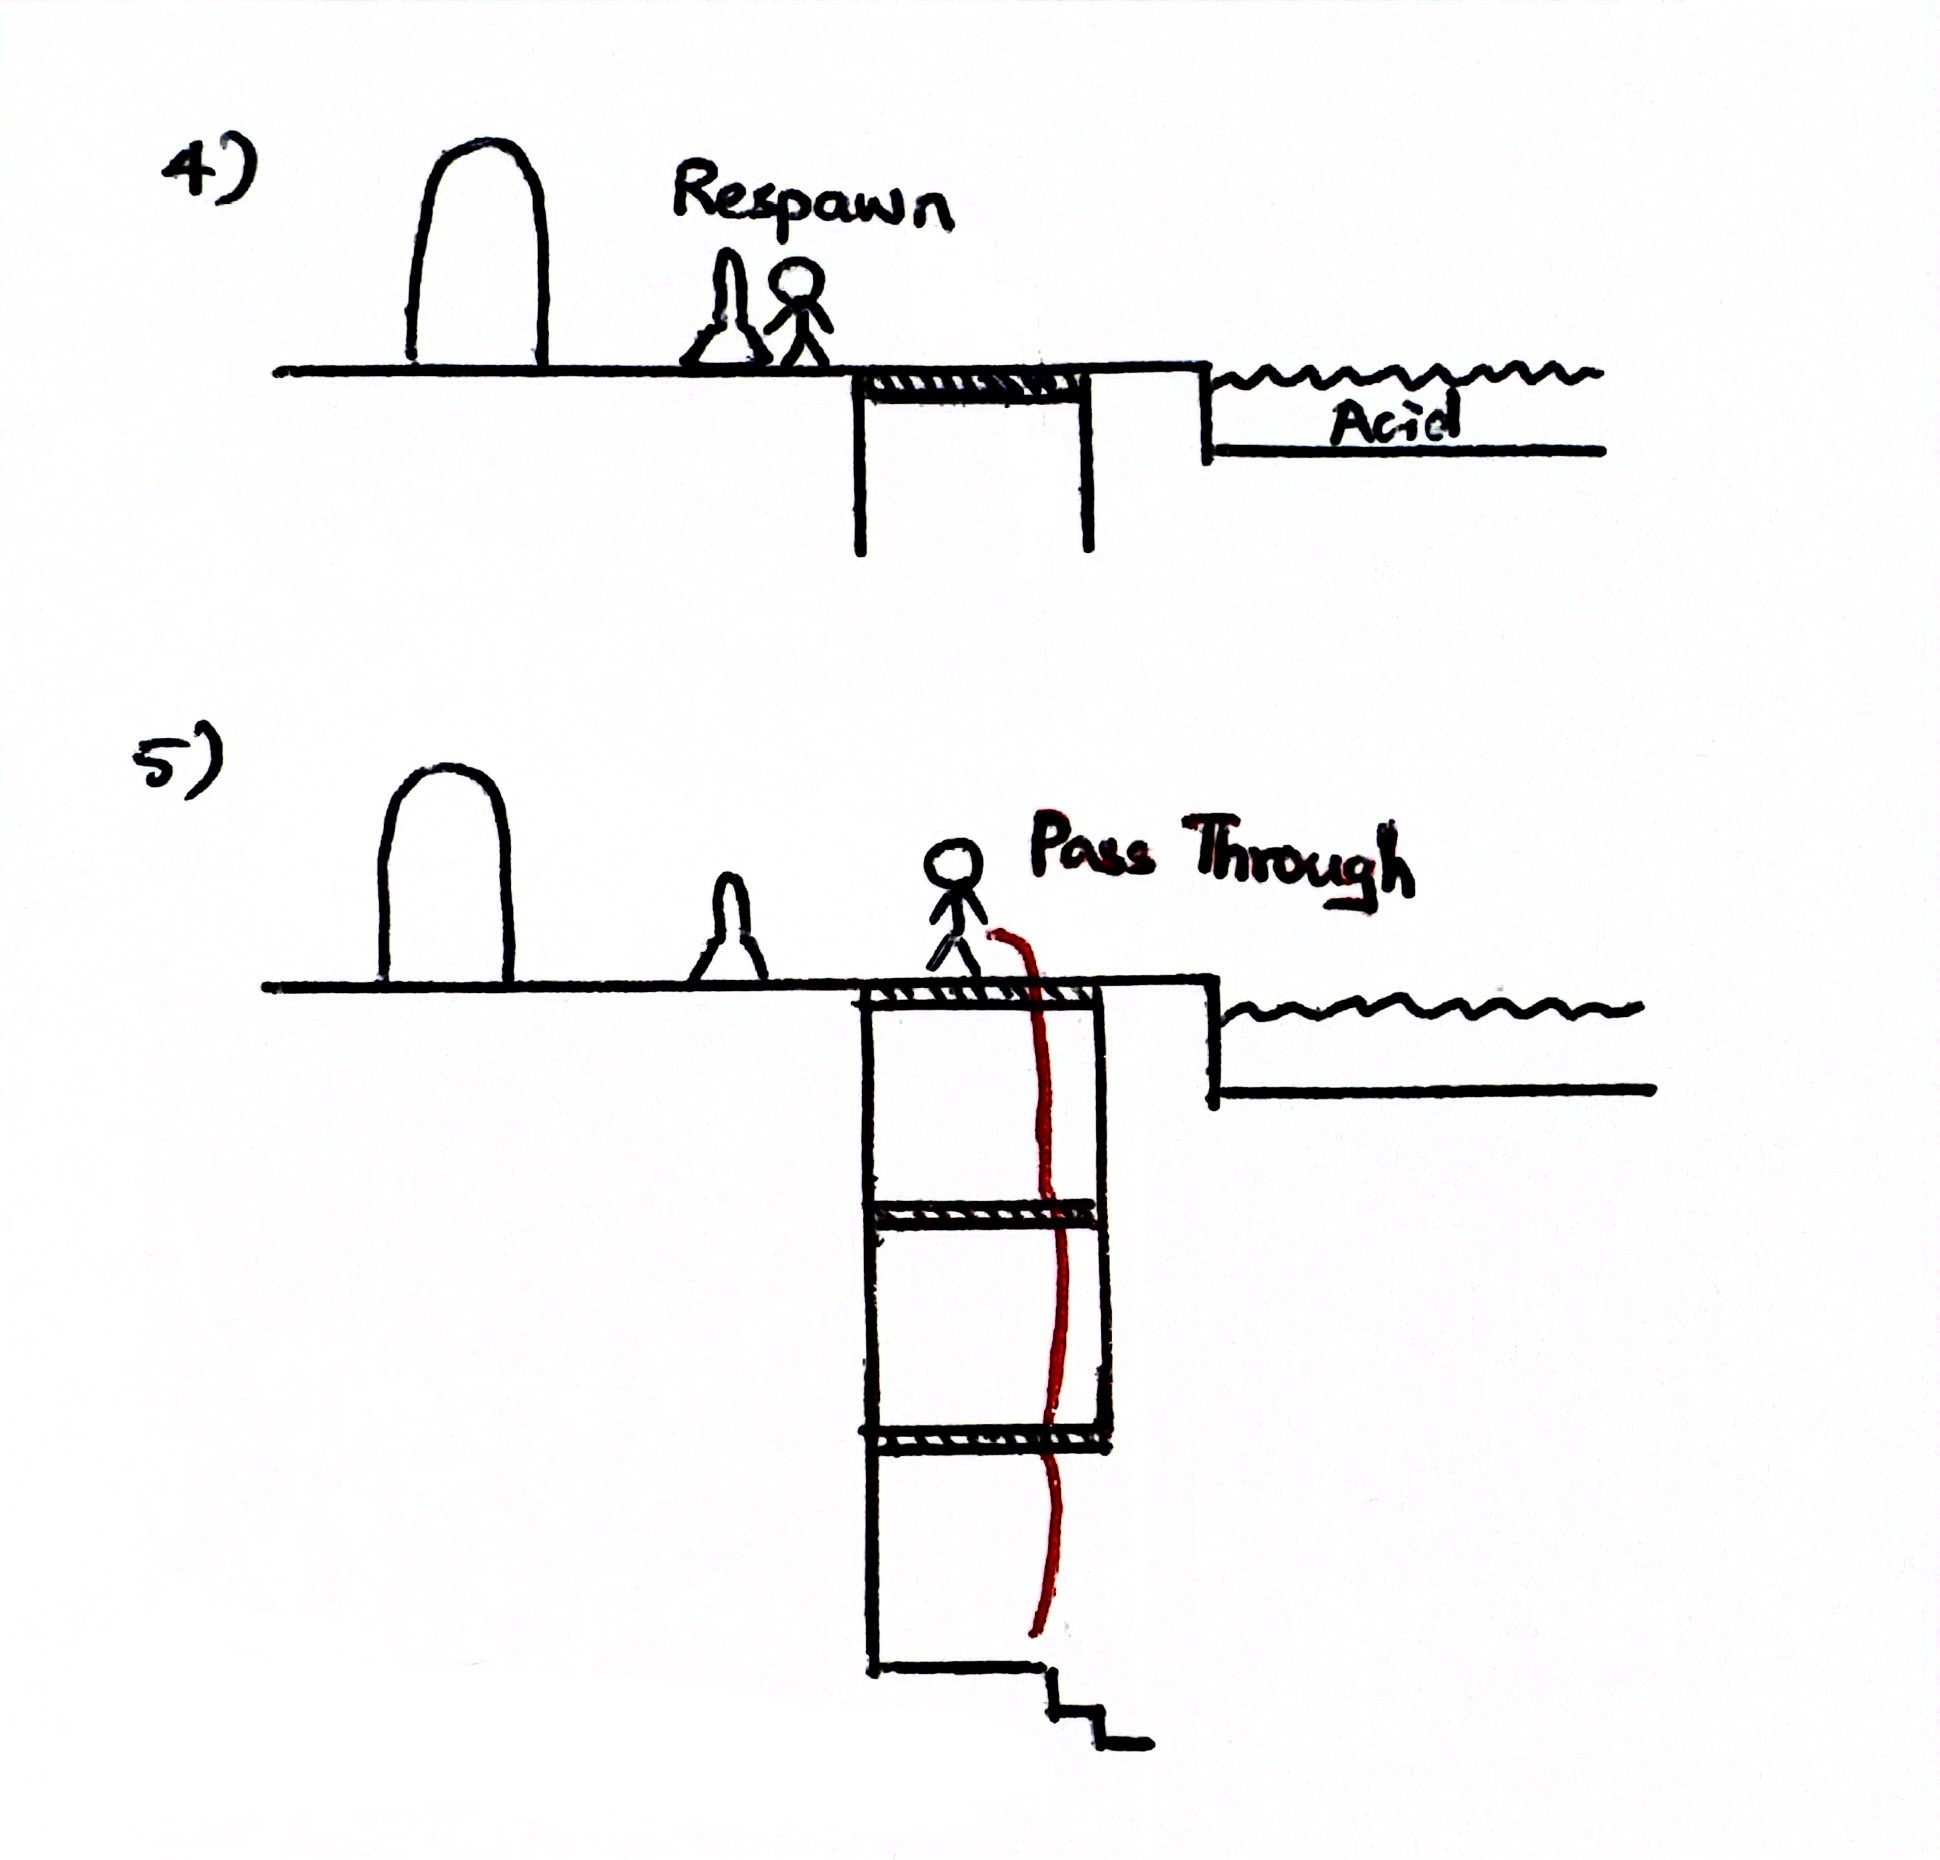 4)
Respawn
Acid
5)
Pass Through